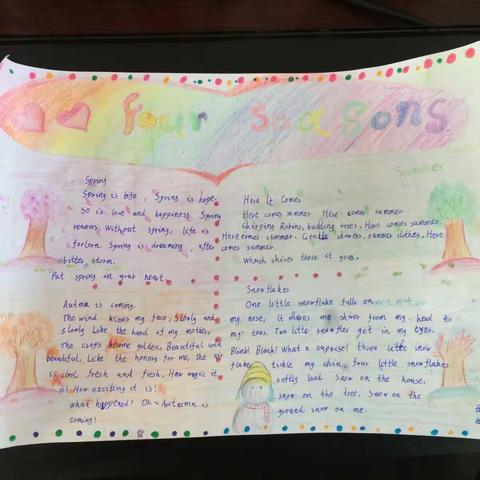 four seasons
Summer
Spring
Spring is life, Spring is hope,
so is love and happiness. Spring
renews, without spring, life is
forlorn. Spring is dreaming, after
bitter storm.
Put spring in your heart.
Here It Comes
Here comes summer, Here comes summer
Chirping Robins, budding roses, Here comes summer.
Here comes summer. Gentle showers, summer clothes, Here
comes summer.
Whoosh shiver there it goes.
Autumn is coming.
The wind kisses my face, slowly and
slowly Like the hand of my mother,
The crops became golden. Beautiful and
beautiful, Like the honors for me, the
is cool, fresh and fresh, How magic it
is! How exciting it is!
What happened! Oh~ Autumn is
coming!
Snowflakes
winter
One little snowflake falls on
my nose, It makes me shiver from my head to
my toes. Two little snowflakes got in my eyes.
Blink! Blink! What a suprise! three little snow
flakes tickle my chin, four little snowflakes
softly land. Snow on the house,
snow on the tree, Snow on the
ground, snow on me.